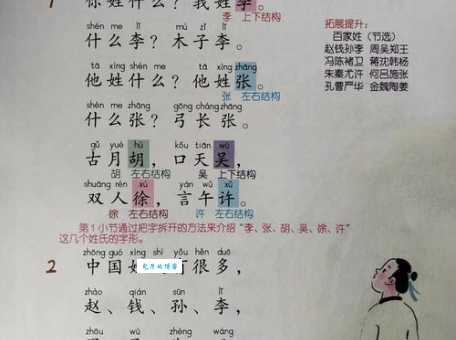 你姓什么？我姓李。
李 上下结构
shén me lǐ mù zǐ lǐ
什么李？木子李。
tā xìng shén me tā xìng zhāng
他姓什么？他姓张。
张 左右结构
shén me zhāng gōng cháng zhāng
什么张？弓长张。
gǔ yuè hú kǒu tiān wú
古月胡，口天吴，
胡 左右结构 吴 上下结构
shuāng rén xú yán wǔ xǔ
双人徐，言午许。
徐 左右结构 许 左右结构
第1小节通过把字拆开的方法来介绍“李、张、胡、吴、徐、许”
这几个姓氏的字形。
zhōng guó xìng shì yǒu hěn duō
2 中国姓 有很多，
兔厚的博客
zhào qián sūn lǐ
赵、钱、孙、李，
zhōu wú zhèng wáng
拓展提升：
百家姓（节选）
赵钱孙李 周吴郑王
冯陈褚卫 蒋沈韩杨
朱秦尤许 何吕施张
孔曹严华 金魏陶姜